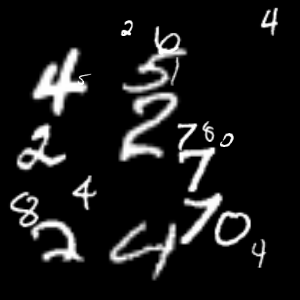 2 4
6
4 5 5 1
2
2 7 8 0
7
8 4
2 4 7 0 4